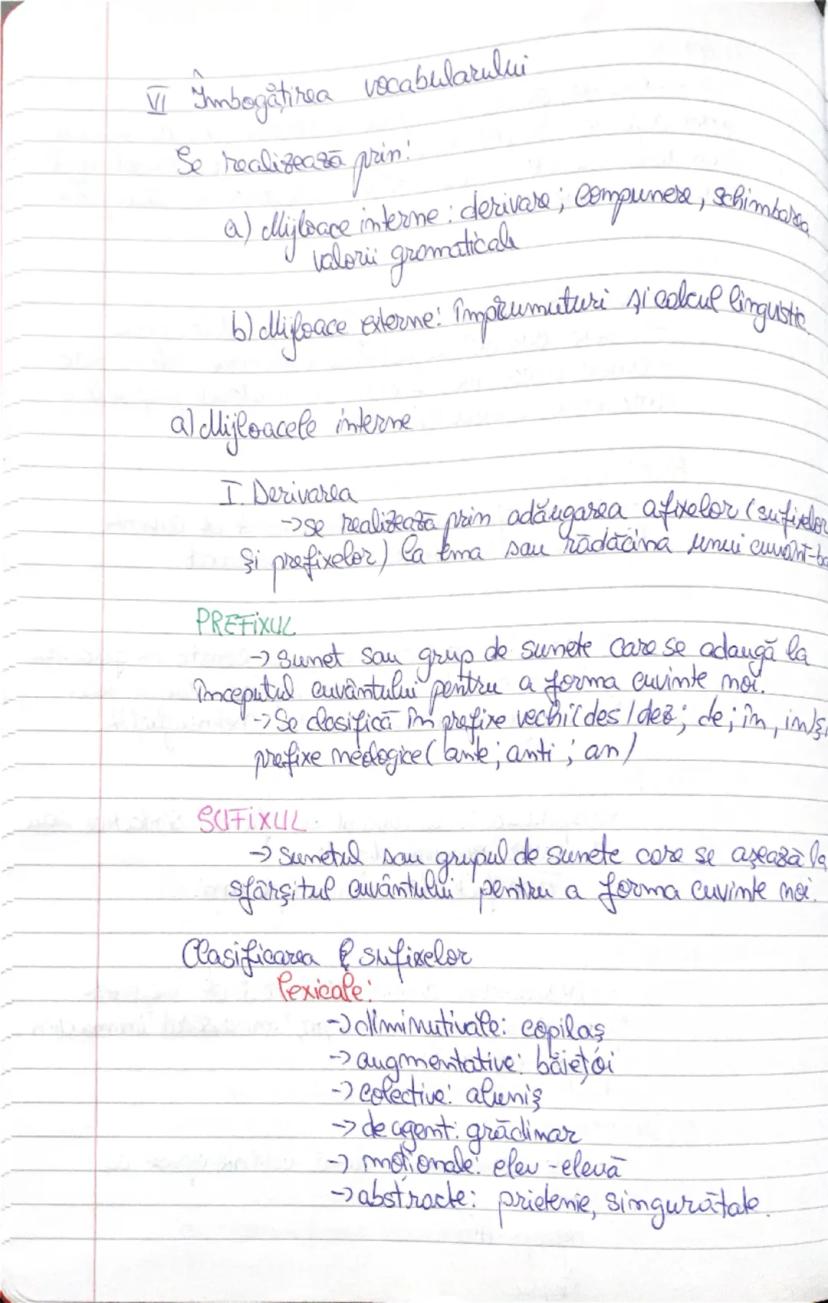 VI Îmbogățirea vocabularului
Se realizează prin:
a) Mijloace interne: derivare; compunere, schimbarea
valorii gramaticale
b) Mijloace externe: împrumuturi și calcul lingvistic
a) Mijloacele interne
I. Derivarea
→ se realizează prin adăugarea afixelor (sufixelor
și prefixelor) la tema sau rădăcina unui cuvânt-ba
PREFIXUL
→ sunet sau grup de sunete care se adaugă la
începutul cuvântului pentru a forma cuvinte noi.
→ Se clasifică în prefixe vechi (des/dez; de; în, im) și
prefixe neologice (ante; anti; an)
SUFIXUL
→ sunetul sau grupul de sunete care se așează la
sfârșitul cuvântului pentru a forma cuvinte noi.
Clasificarea sufixelor
lexicale:
→ diminutivale: copilaș
→ augmentative: băiețoi
→ colective: aluniș
→ de agent: grădinar
→ moționale: elev - elevă
→ abstracte: prietenie, singurătate.